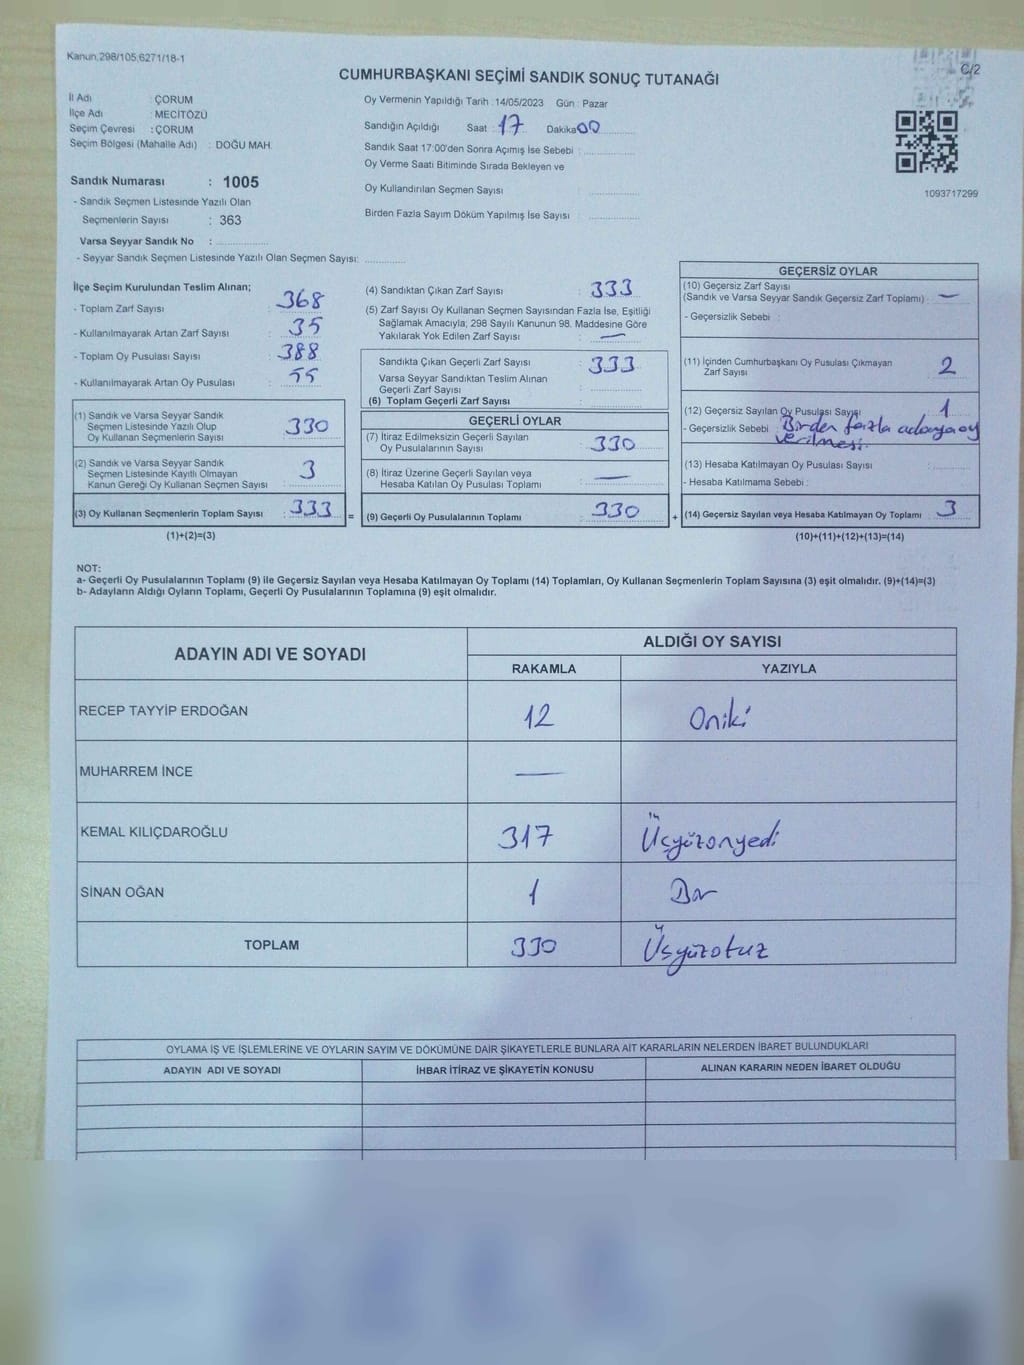 Kanun.298/105,6271/18-1
C/2
CUMHURBAŞKANI SEÇİMİ SANDIK SONUÇ TUTANAĞI
İl Adı : ÇORUM
İlçe Adı : MECİTÖZÜ
Seçim Çevresi : ÇORUM
Seçim Bölgesi (Mahalle Adı) : DOĞU MAH.
Sandık Numarası : 1005
- Sandık Seçmen Listesinde Yazılı Olan
Seçmenlerin Sayısı : 363
Varsa Seyyar Sandık No :
- Seyyar Sandık Seçmen Listesinde Yazılı Olan Seçmen Sayısı:
Oy Vermenin Yapıldığı Tarih : 14/05/2023 Gün : Pazar
Sandığın Açıldığı Saat : 17 Dakika 00
Sandık Saat 17:00'den Sonra Açımış İse Sebebi :
Oy Verme Saati Bitiminde Sırada Bekleyen ve
Oy Kullandırılan Seçmen Sayısı :
Birden Fazla Sayım Döküm Yapılmış İse Sayısı :
1093717299
İlçe Seçim Kurulundan Teslim Alınan;
- Toplam Zarf Sayısı : 368
- Kullanılmayarak Artan Zarf Sayısı : 35
- Toplam Oy Pusulası Sayısı : 388
- Kullanılmayarak Artan Oy Pusulası : 55
(1) Sandık ve Varsa Seyyar Sandık
Seçmen Listesinde Yazılı Olup
Oy Kullanan Seçmenlerin Sayısı : 330
(2) Sandık ve Varsa Seyyar Sandık
Seçmen Listesinde Kayıtlı Olmayan
Kanun Gereği Oy Kullanan Seçmen Sayısı : 3
(3) Oy Kullanan Seçmenlerin Toplam Sayısı : 333 =
(1)+(2)=(3)
(4) Sandıktan Çıkan Zarf Sayısı : 333
(5) Zarf Sayısı Oy Kullanan Seçmen Sayısından Fazla İse, Eşitliği
Sağlamak Amacıyla; 298 Sayılı Kanunun 98. Maddesine Göre
Yakılarak Yok Edilen Zarf Sayısı : —
Sandıkta Çıkan Geçerli Zarf Sayısı : 333
Varsa Seyyar Sandıktan Teslim Alınan
Geçerli Zarf Sayısı :
(6) Toplam Geçerli Zarf Sayısı :
GEÇERLİ OYLAR
(7) İtiraz Edilmeksizin Geçerli Sayılan
Oy Pusulasının Sayısı : 330
(8) İtiraz Üzerine Geçerli Sayılan veya
Hesaba Katılan Oy Pusulası Toplamı : —
(9) Geçerli Oy Pusulalarının Toplamı : 330 +
GEÇERSİZ OYLAR
(10) Geçersiz Zarf Sayısı
(Sandık ve Varsa Seyyar Sandık Geçersiz Zarf Toplamı) : —
- Geçersizlik Sebebi :
(11) İçinden Cumhurbaşkanı Oy Pusulası Çıkmayan
Zarf Sayısı : 2
(12) Geçersiz Sayılan Oy Pusulası Sayısı : 1
- Geçersizlik Sebebi : Birden fazla adaya oy
verilmesi.
(13) Hesaba Katılmayan Oy Pusulası Sayısı :
- Hesaba Katılmama Sebebi :
(14) Geçersiz Sayılan veya Hesaba Katılmayan Oy Toplamı : 3
(10)+(11)+(12)+(13)=(14)
NOT:
a- Geçerli Oy Pusulalarının Toplamı (9) ile Geçersiz Sayılan veya Hesaba Katılmayan Oy Toplamı (14) Toplamları, Oy Kullanan Seçmenlerin Toplam Sayısına (3) eşit olmalıdır. (9)+(14)=(3)
b- Adayların Aldığı Oyların Toplamı, Geçerli Oy Pusulalarının Toplamına (9) eşit olmalıdır.
ADAYIN ADI VE SOYADI
ALDIĞI OY SAYISI
RAKAMLA YAZIYLA
RECEP TAYYİP ERDOĞAN 12 Oniki
MUHARREM İNCE —
KEMAL KILIÇDAROĞLU 317 Üçyüzonyedi
SİNAN OĞAN 1 Bir
TOPLAM 330 Üçyüzotuz
OYLAMA İŞ VE İŞLEMLERİNE VE OYLARIN SAYIM VE DÖKÜMÜNE DAİR ŞİKAYETLERLE BUNLARA AİT KARARLARIN NELERDEN İBARET BULUNDUKLARI
ADAYIN ADI VE SOYADI İHBAR İTİRAZ VE ŞİKAYETİN KONUSU ALINAN KARARIN NEDEN İBARET OLDUĞU